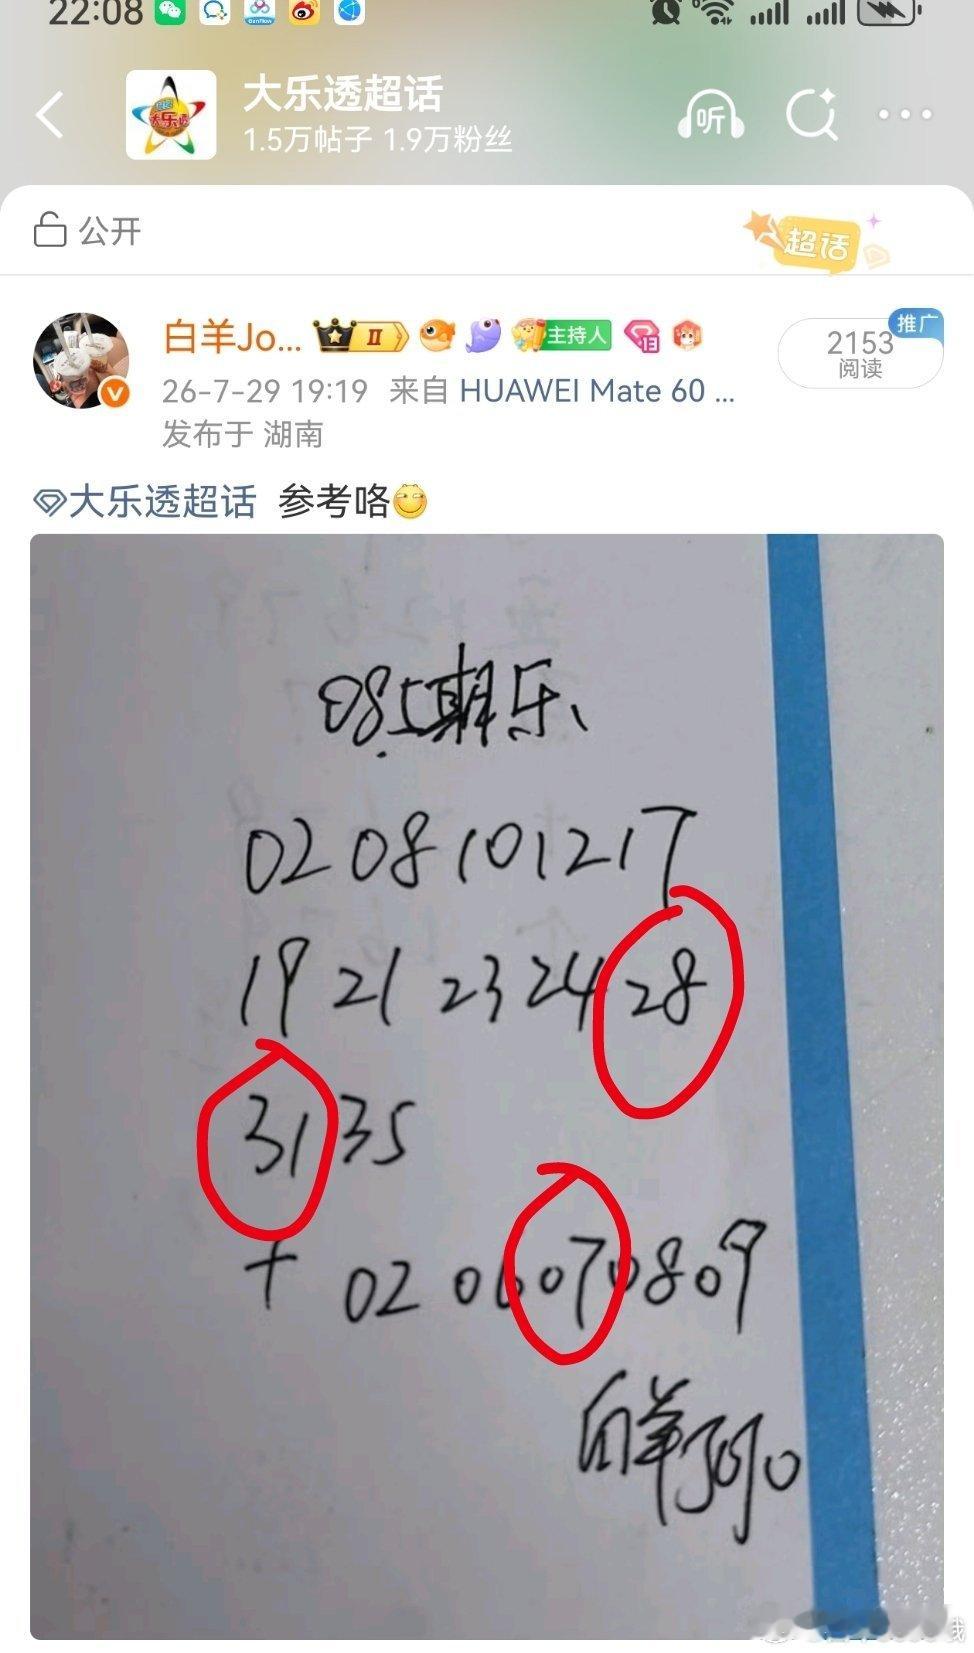 22:08
大乐透超话
听
1.5万帖子 1.9万粉丝
公开
超话
白羊Jo... II 主持人 13
推广
2153
阅读
26-7-29 19:19 来自 HUAWEI Mate 60 ...
发布于 湖南
大乐透超话 参考咯
085期乐、
02 08 10 12 17
19 21 23 24 28
31 35
+ 02 06 07 08 09
白羊